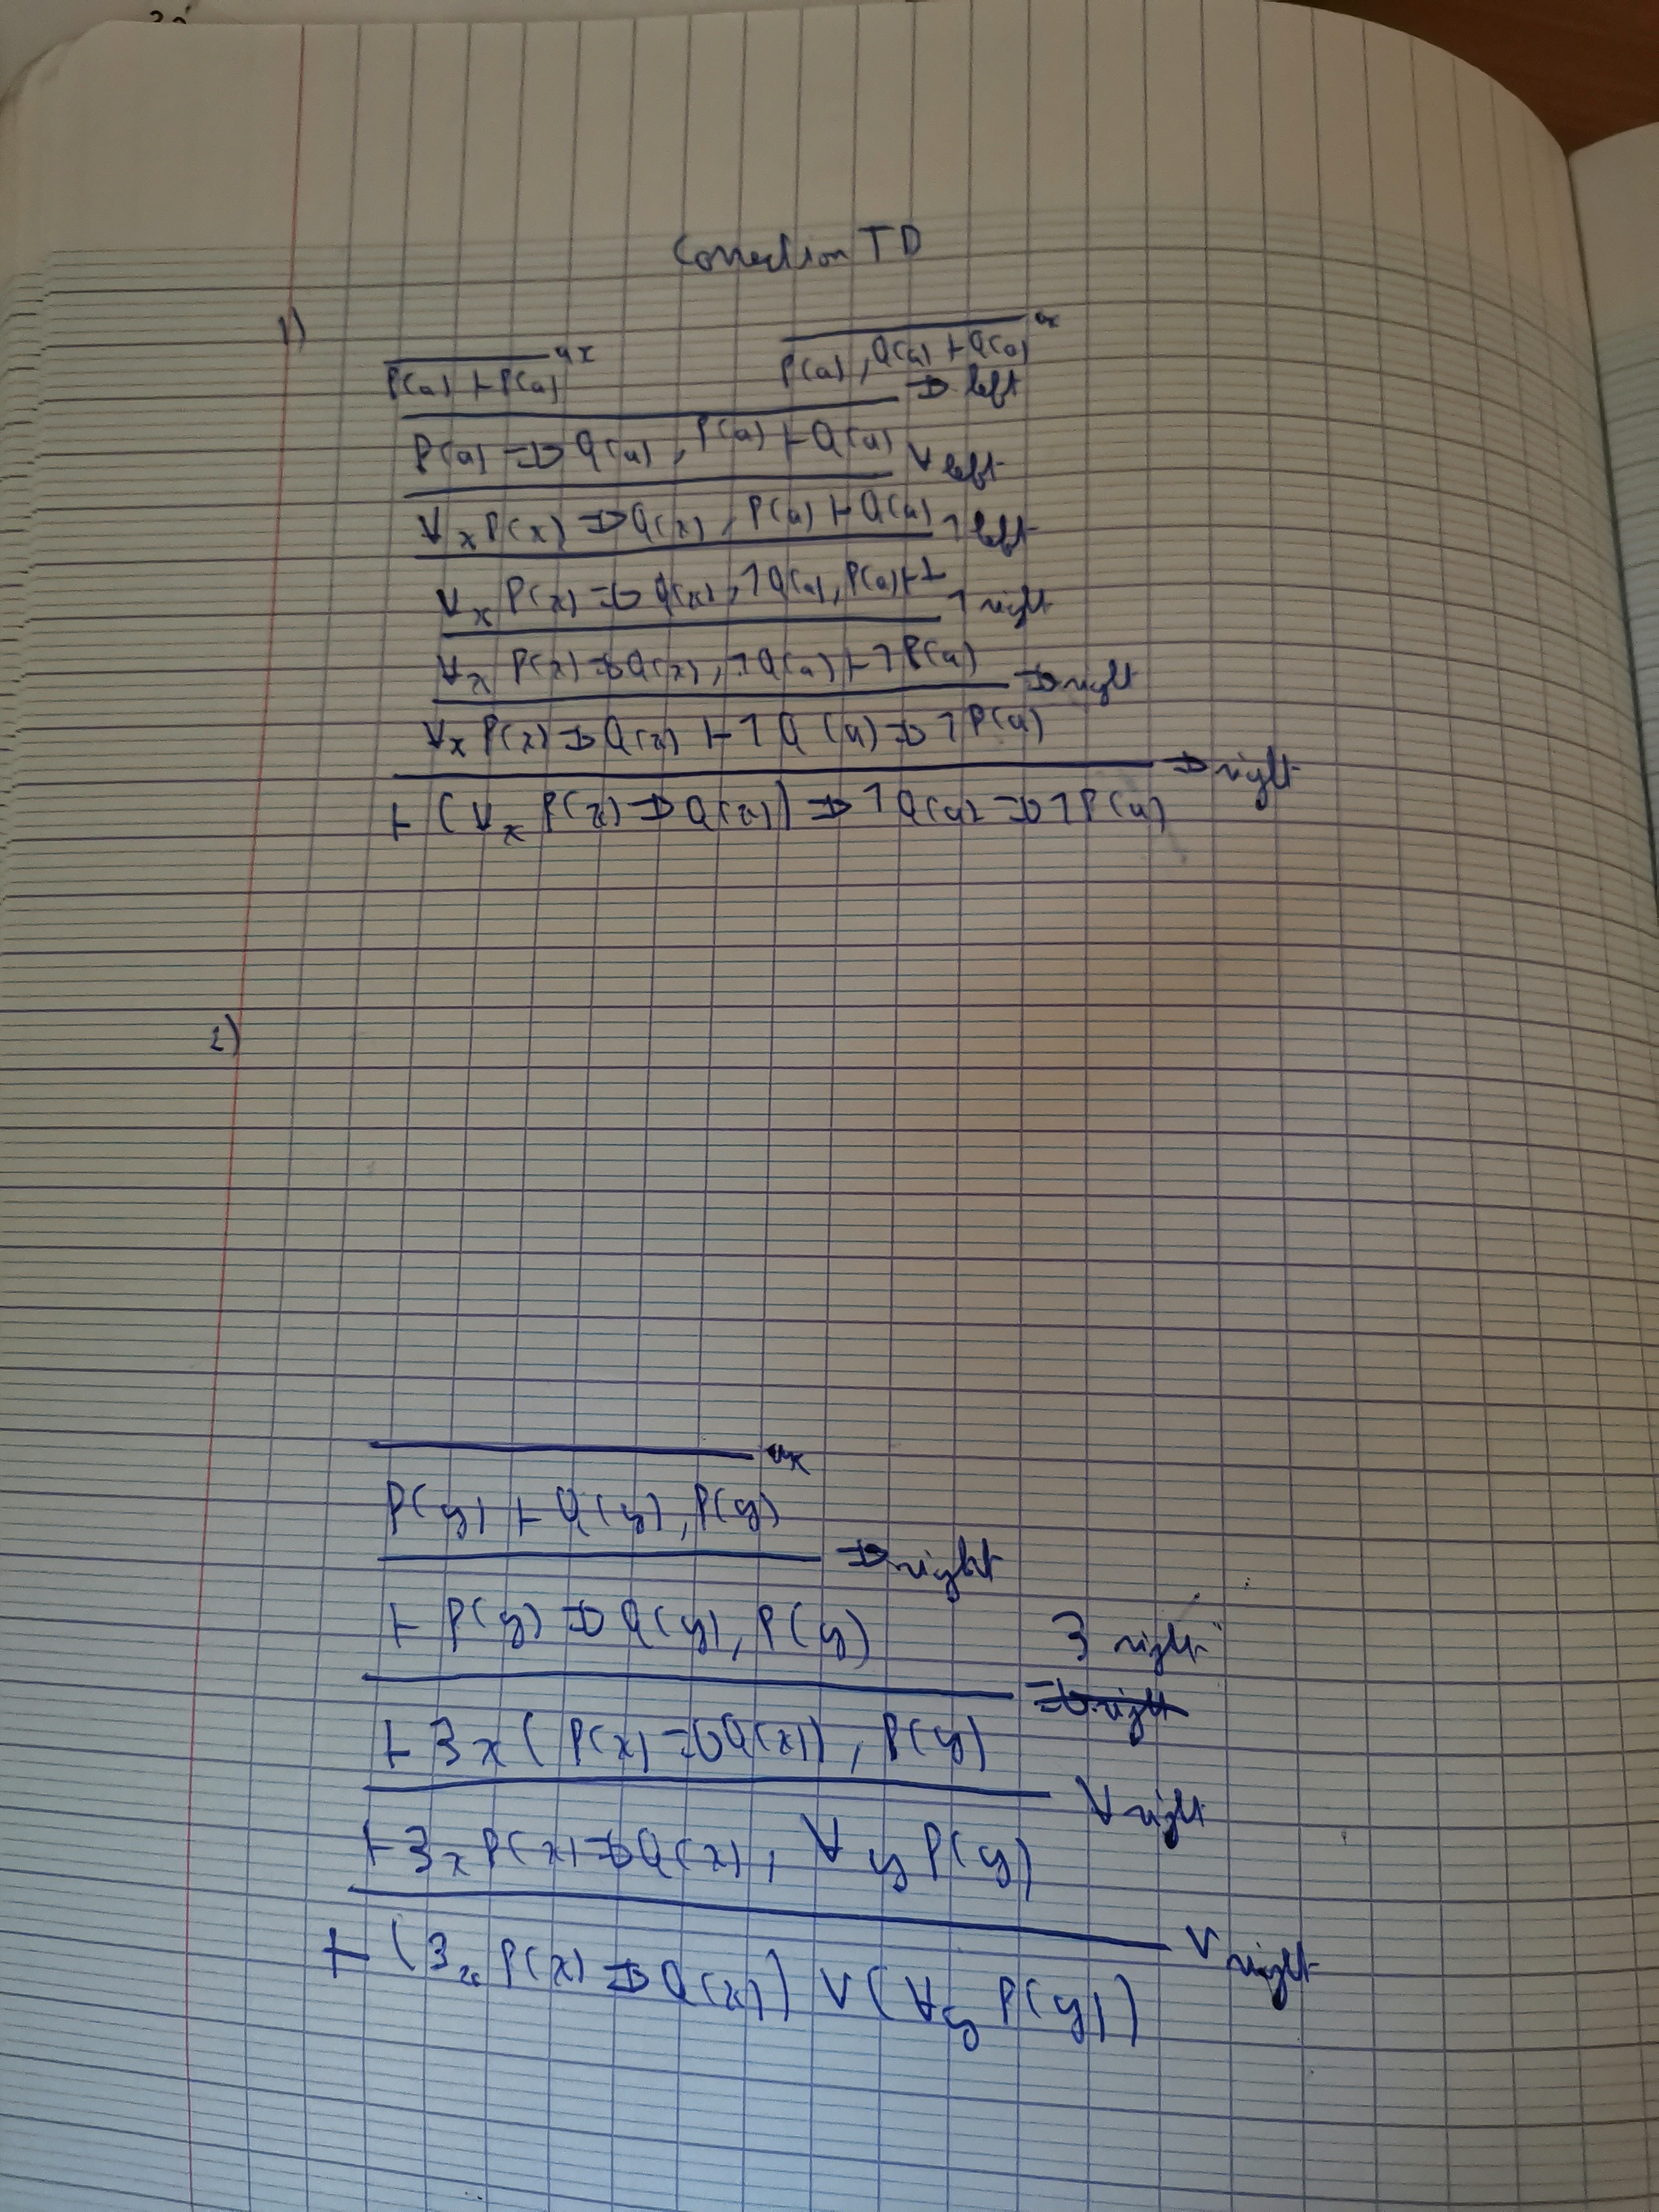 Correction TD
1)
ax
ax
P(a) ⊢ P(a)
P(a), Q(a) ⊢ Q(a)
⇒ left
P(a) ⇒ Q(a), P(a) ⊢ Q(a)
∀ left
∀x P(x) ⇒ Q(x), P(a) ⊢ Q(a)
¬ left
∀x P(x) ⇒ Q(x), ¬Q(a), P(a) ⊢ ⊥
¬ right
∀x P(x) ⇒ Q(x), ¬Q(a) ⊢ ¬P(a)
⇒ right
∀x P(x) ⇒ Q(x) ⊢ ¬Q(a) ⇒ ¬P(a)
⇒ right
⊢ (∀x P(x) ⇒ Q(x)) ⇒ ¬Q(a) ⇒ ¬P(a)
2)
ax
P(y) ⊢ Q(y), P(y)
⇒ right
⊢ P(y) ⇒ Q(y), P(y)
∃ right
⇒ right
⊢ ∃x (P(x) ⇒ Q(x)), P(y)
∀ right
⊢ ∃x P(x) ⇒ Q(x), ∀y P(y)
∨ right
⊢ (∃x P(x) ⇒ Q(x)) ∨ (∀y P(y))